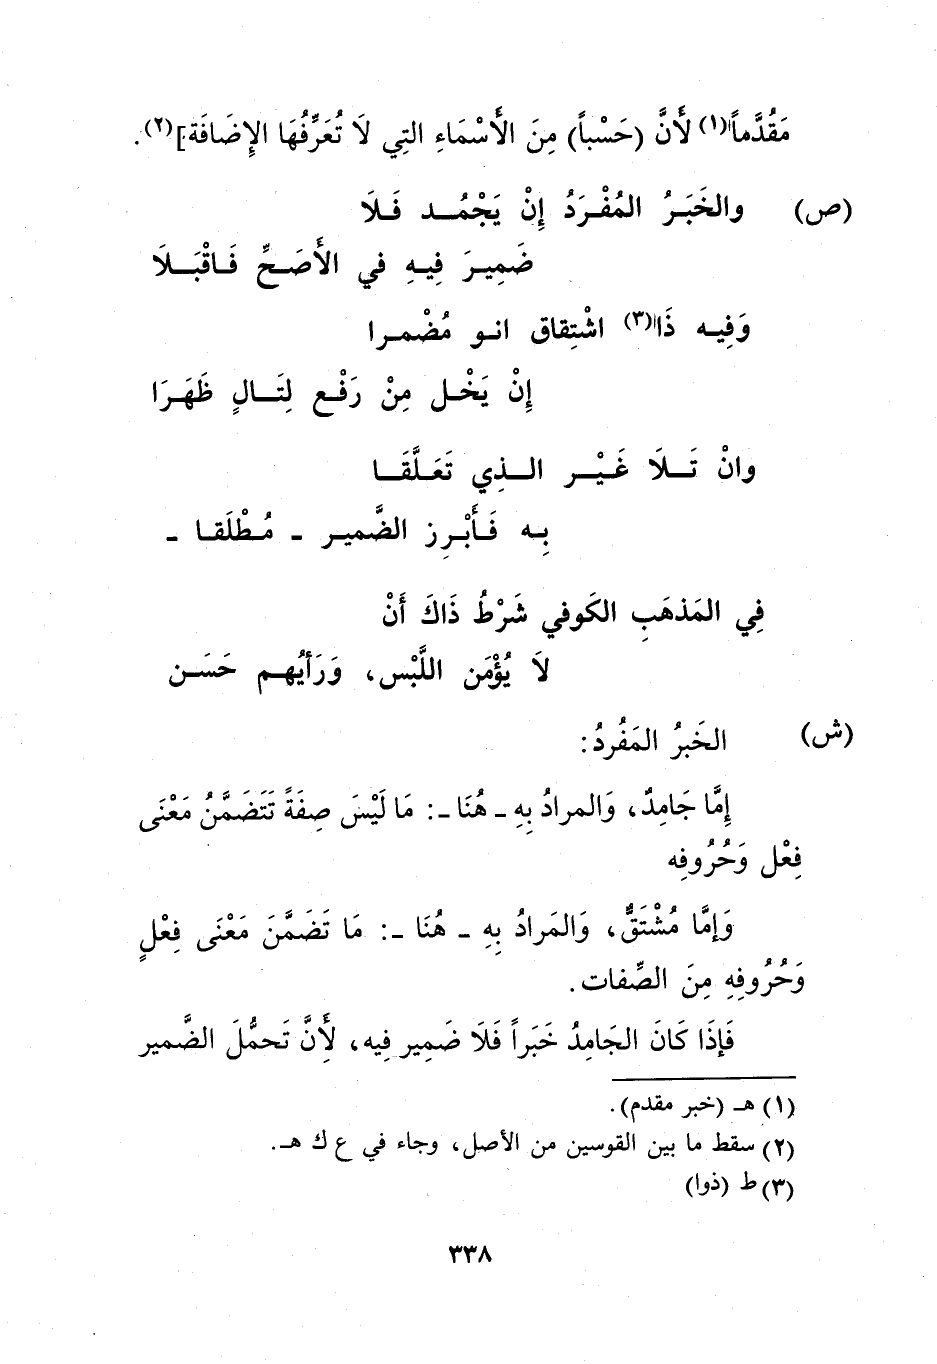 مَقُدَّماً(١) لأَنَّ (حَسْباً) مِنَ الأَسْمَاءِ التِي لَا تُعَرِّفُهَا الإِضَافَة](٢).
(ص) والخَبَـرُ المُفْـرَدُ إِنْ يَجْمُـــد فَـلَا
ضَمِيـرَ فِيـهِ في الأَصَـحِّ فَـاقْبَـلَا
وَفِيـه ذَا(٣) اشْتِقاق انـو مُضْمـرا
إِنْ يَخْـل مِنْ رَفْـع لِتَـالٍ ظَهَـرَا
وانْ تَــلَا غَيْــر الــذِي تَعَـلَّقَــا
بِـه فَـأَبْـرِز الضَّميـر - مُـطْلَقـا -
فِي المَذهَبِ الكَوفي شَرْطُ ذَاكَ أَنْ
لَا يُؤْمَن اللَّبْس، وَرَأيُهـم حَسَـن
(ش) الخَبرُ المَفُردُ:
إِمَّا جَامِدٌ، وَالمرادُ بِهِ - هُنَا -: مَا لَيْسَ صِفَةً تَتَضَمَّنُ مَعْنَى
فِعْل وَحُرُوفِه
وَإِمَّا مُشْتَقٌّ، وَالمَرادُ بِهِ - هُنَا -: مَا تَضَمَّنَ مَعْنَى فِعْلٍ
وَحُرُوفِهِ مِنَ الصِّفات.
فَإذَا كَانَ الجَامِدُ خَبَراً فَلَا ضَمِير فِيه، لِأَنَّ تَحمُّلَ الضَّمير
(١) هـ (خبر مقدم).
(٢) سقط ما بين القوسين من الأصل، وجاء في ع ك هـ.
(٣) ط (ذوا)
٣٣٨